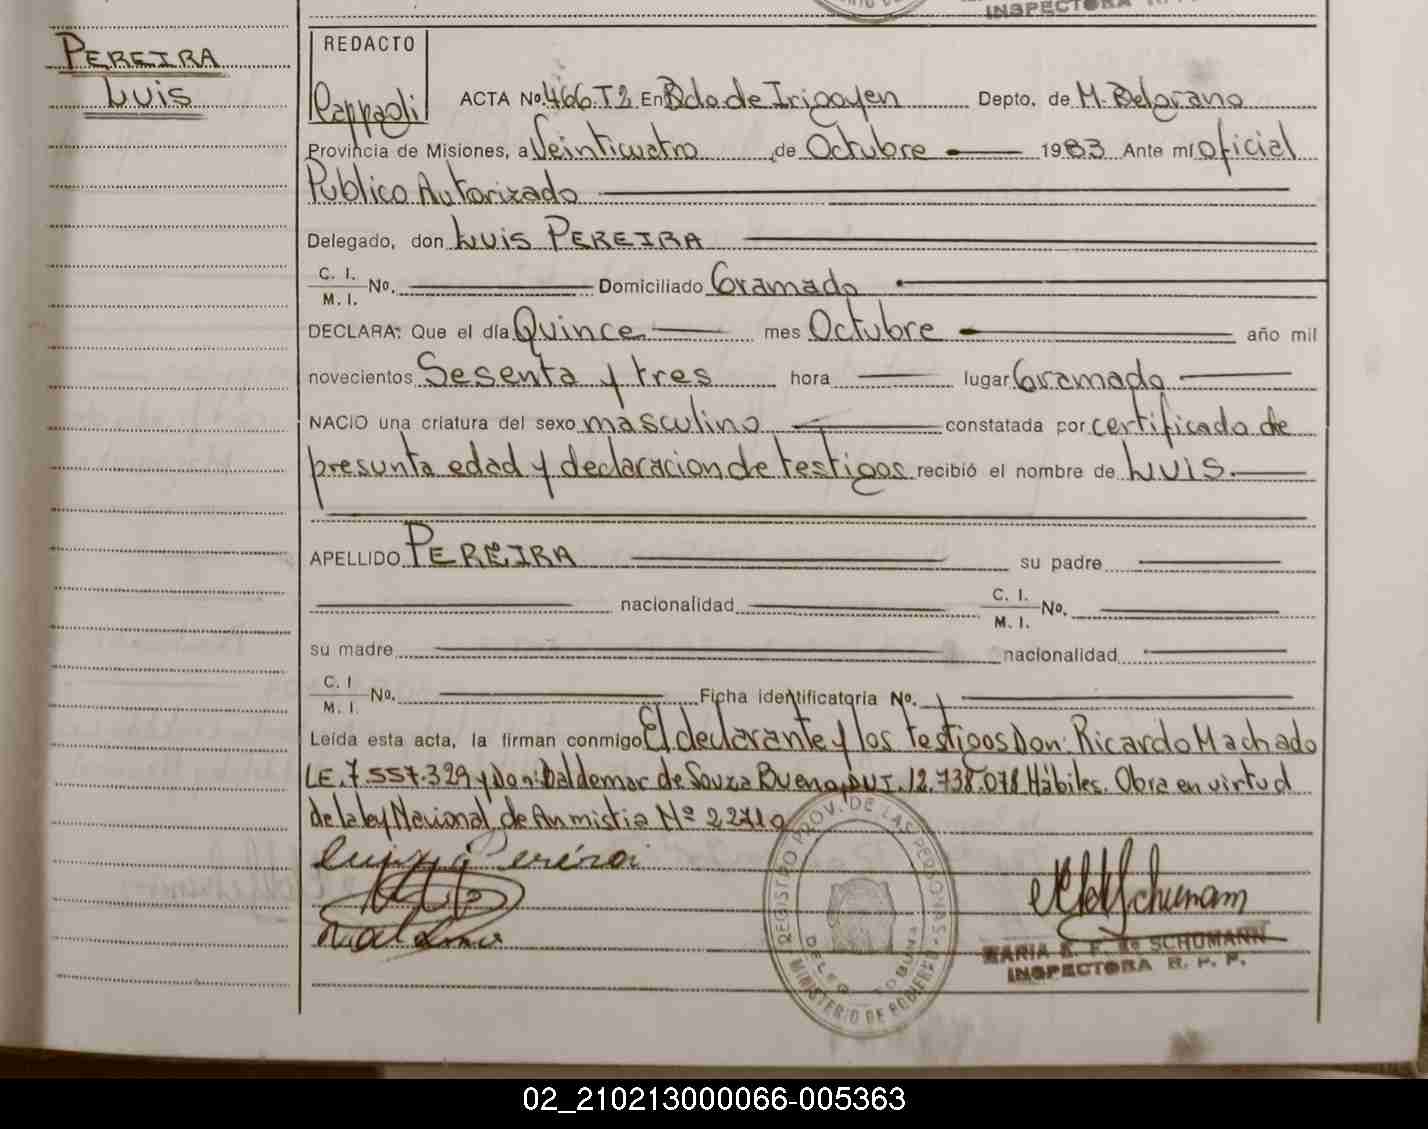 INSPECTORA R. P. P.
PEREIRA
LUIS
REDACTO
Pappaoli
ACTA No. 466. T2 En Bdo. de Irigoyen Depto. de M. Belgrano
Provincia de Misiones, a Veinticuatro de Octubre 1983 Ante mí oficial
Publico Autorizado
Delegado, don Luis PEREIRA
C. I. / M. I. No. Domiciliado Gramado
DECLARA: Que el día Quince mes Octubre año mil
novecientos Sesenta y tres hora lugar Gramado
NACIO una criatura del sexo masculino constatada por certificado de
presunta edad y declaracion de testigos recibió el nombre de LUIS.
APELLIDO PEREIRA su padre
nacionalidad C. I. / M. I. No.
su madre nacionalidad
C. I / M. I. No. Ficha identificatoria No.
Leída esta acta, la firman conmigo El declarante y los testigos Don: Ricardo Machado
L.E. 7.557.329 y Don: Baldemar de Souza Bueno, D.N.I. 12.738.078 Hábiles. Obra en virtud
de la ley Nacional de Anmistia Nº 22710
Luiz Pereira
REGISTRO PROV. DE LAS PERSONAS
MINISTERIO DE GOBIERNO
DELEG. TOBUNA
Schumam
MARIA E. F. de SCHUMANN
INSPECTORA R. P. P.
02_210213000066-005363